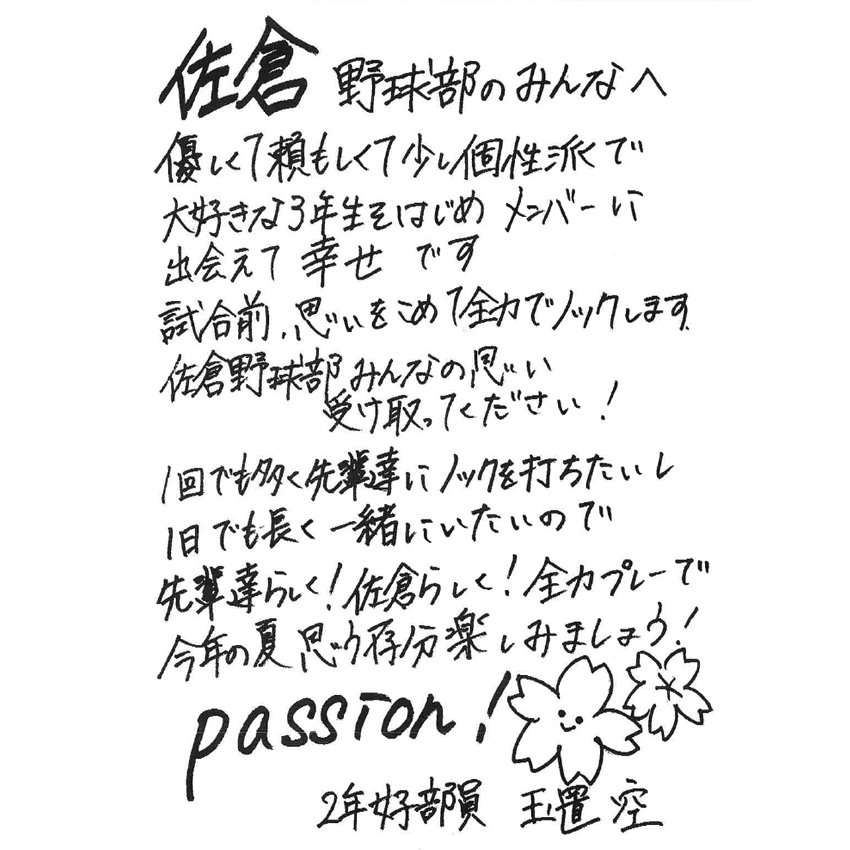 佐倉 野球部のみんなへ
優しくて頼もしくて少し個性派で
大好きな3年生をはじめ メンバーに
出会えて 幸せ です
試合前、思いをこめて全力でノックします
佐倉野球部みんなの思い
受け取ってください!
1回でも多く先輩達にノックを打ちたいし
1日でも長く 一緒にいたいので
先輩達らしく!佐倉らしく!全力プレーで
今年の夏 思う存分楽しみましょう!
passion!
2年好部員 玉置 空